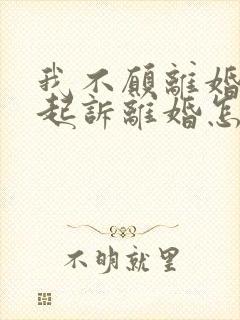 我不願離婚
起訴離婚怎
不明就里